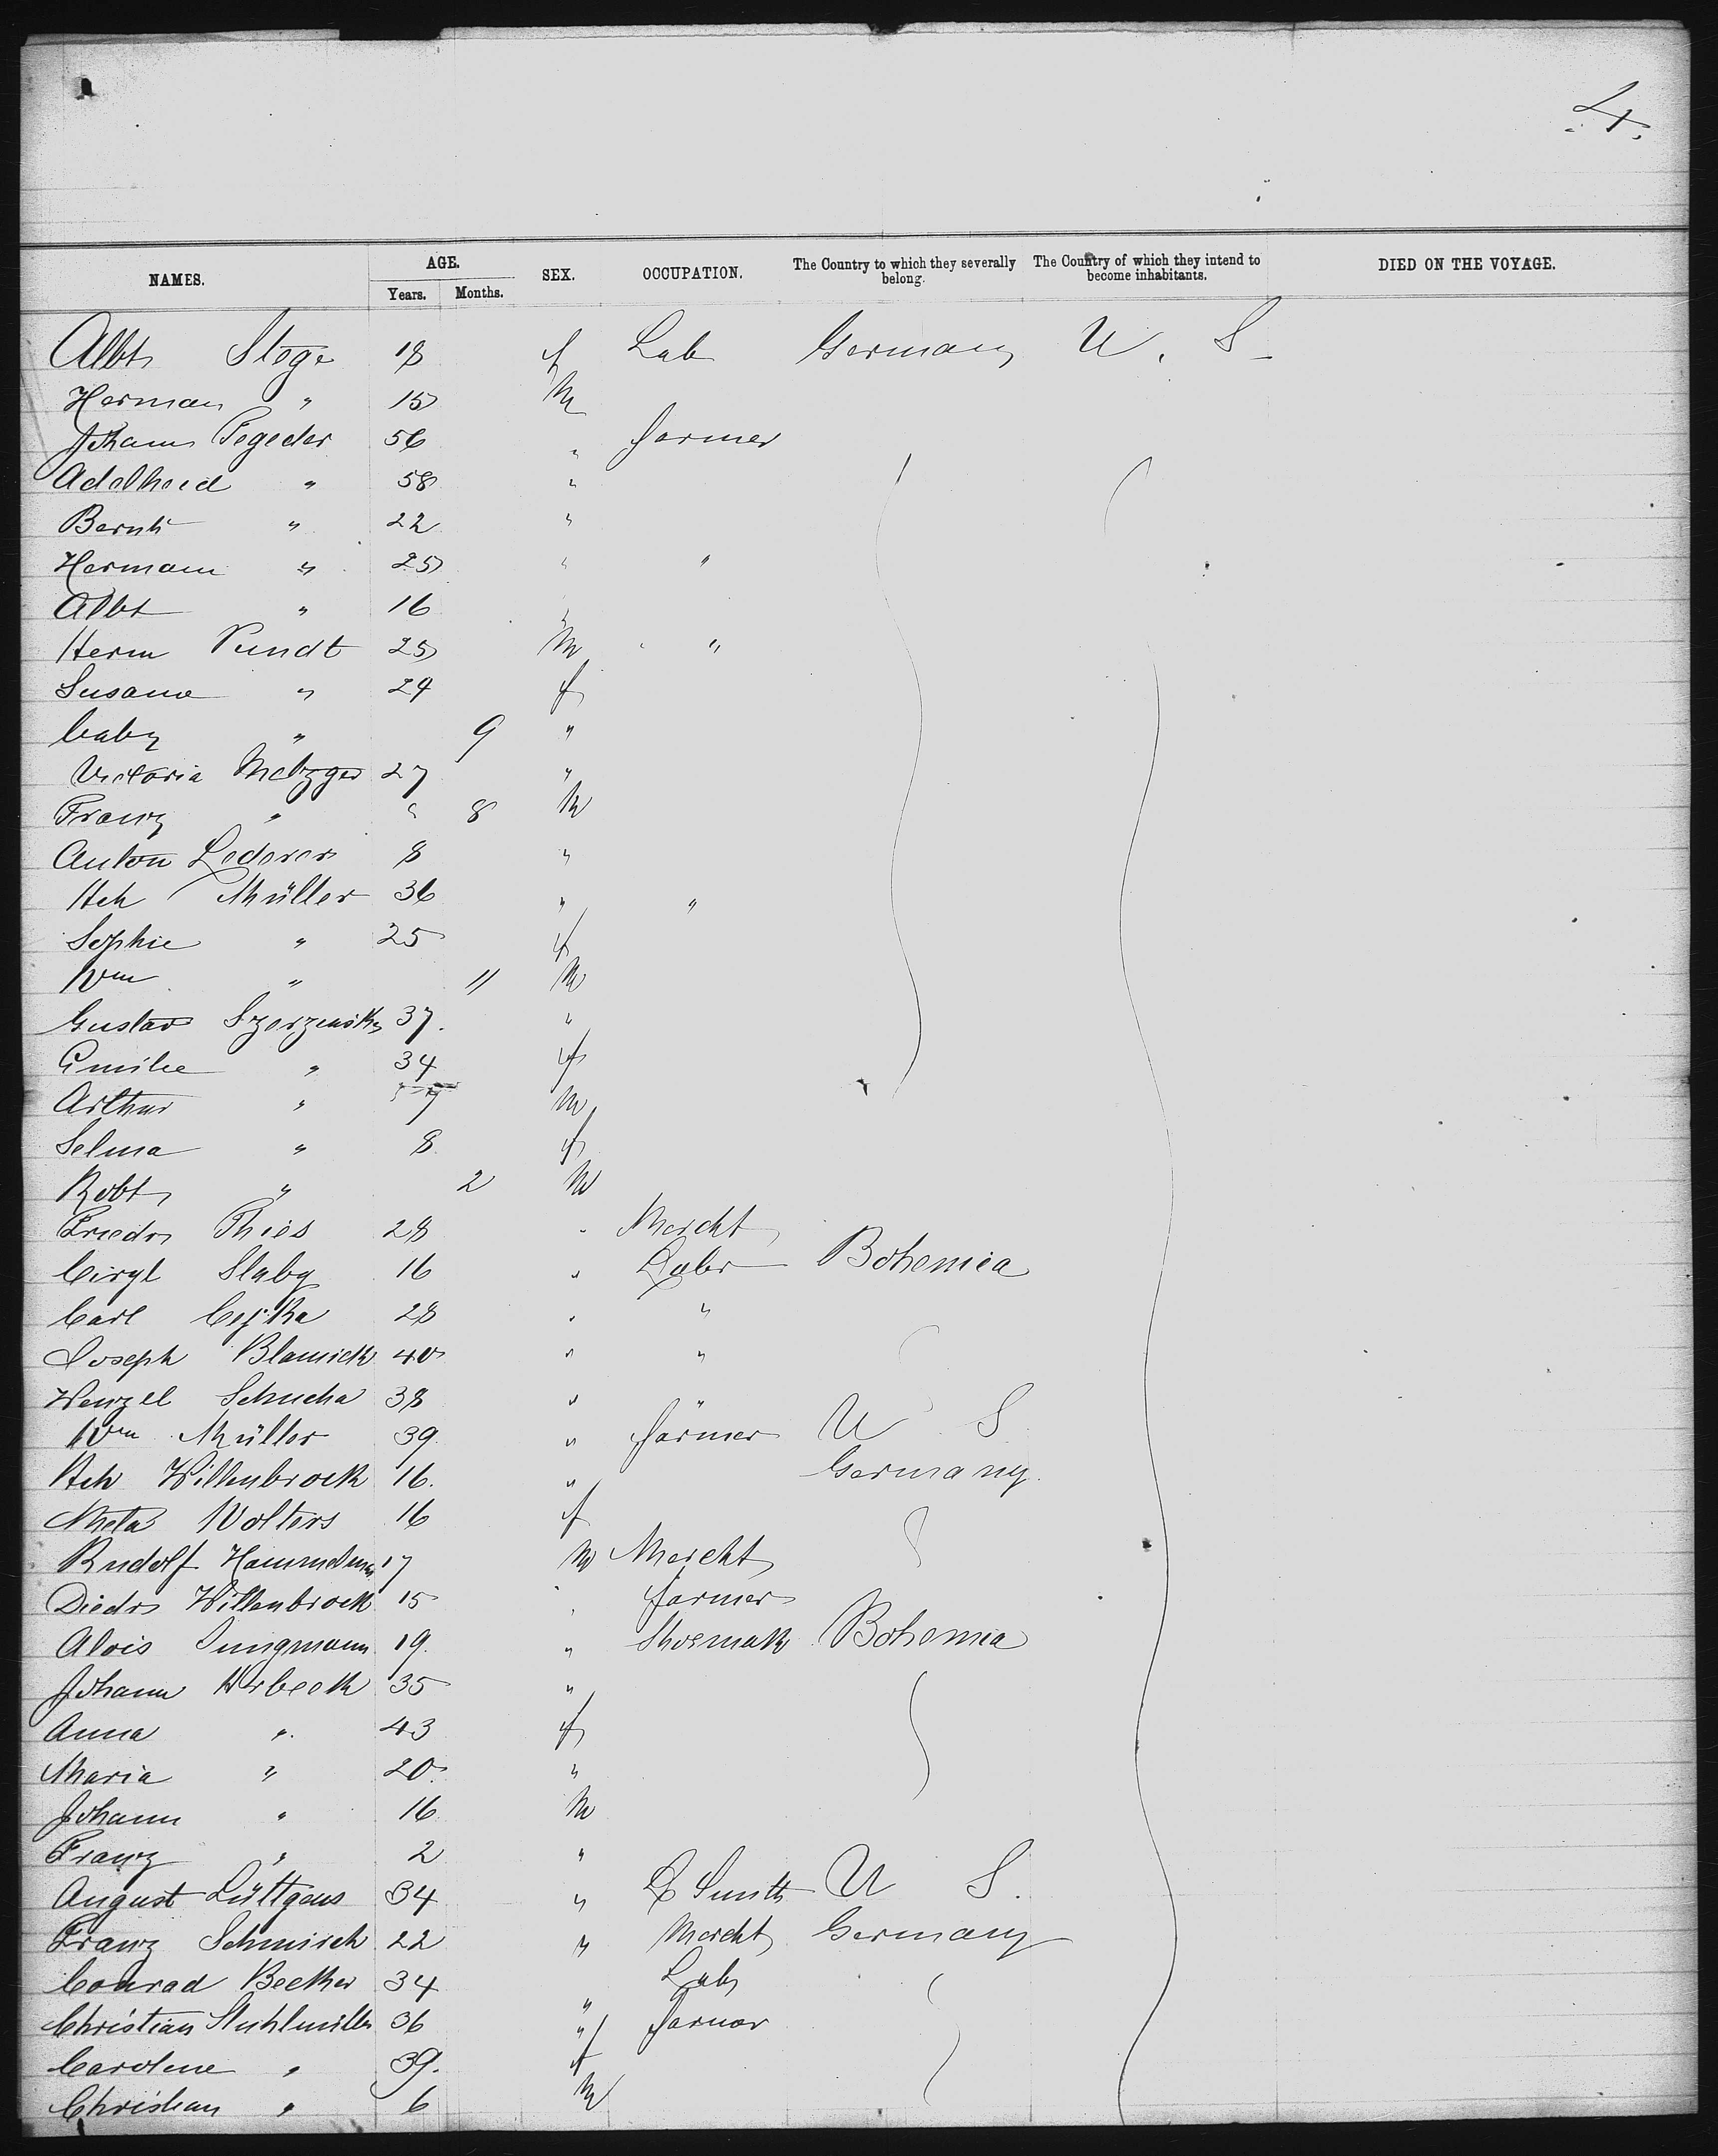 4.
NAMES. AGE. SEX. OCCUPATION. The Country to which they severally belong. The Country of which they intend to become inhabitants. DIED ON THE VOYAGE.
Years. Months.
Albt Stege 18 f Lab Germany U. S.
Herman " 15 M
Johann Tegeder 56 " farmer
Adelheid " 58 "
Bernh " 22 "
Hermann " 25 " "
Albt " 16 "
Herm Pundt 25 M "
Susana " 24 f
baby " 9 "
Victoria Metzger 27 "
Franz " " 8 M
Anton Lederer 8 "
Hch Müller 36 " "
Sophie " 25 f
Wm " 11 M
Gustav 37. "
Emilie " 34 f
Arthur " 9 M
Selma " 8 f
Robt " 2 M
Friedr Thies 28 " Mercht
Ciryl Slaby 16 " Labr Bohemia
Carl Cejka 28 " "
Joseph 40 " "
Wenzel Schucha 38 "
Wm Müller 39 " farmer U S
Hch Willenbrock 16. " Germany.
Meta Wolters 16 f
Rudolf 17 M Mercht
Diedr Willenbrock 15 " farmer
Alois Jungmann 19. " Shoemak Bohemia
Johann 35 "
Anna " 43 f
Maria " 20. "
Johann " 16 M
Franz " 2 "
August Lüttgens 34 " Smith U S.
Franz Schmisch 22 " Mercht Germany
Conrad Becker 34 " Lab
Christian Stuhlmiller 36 " farmer
Caroline " 39. f
Christian " 6 M